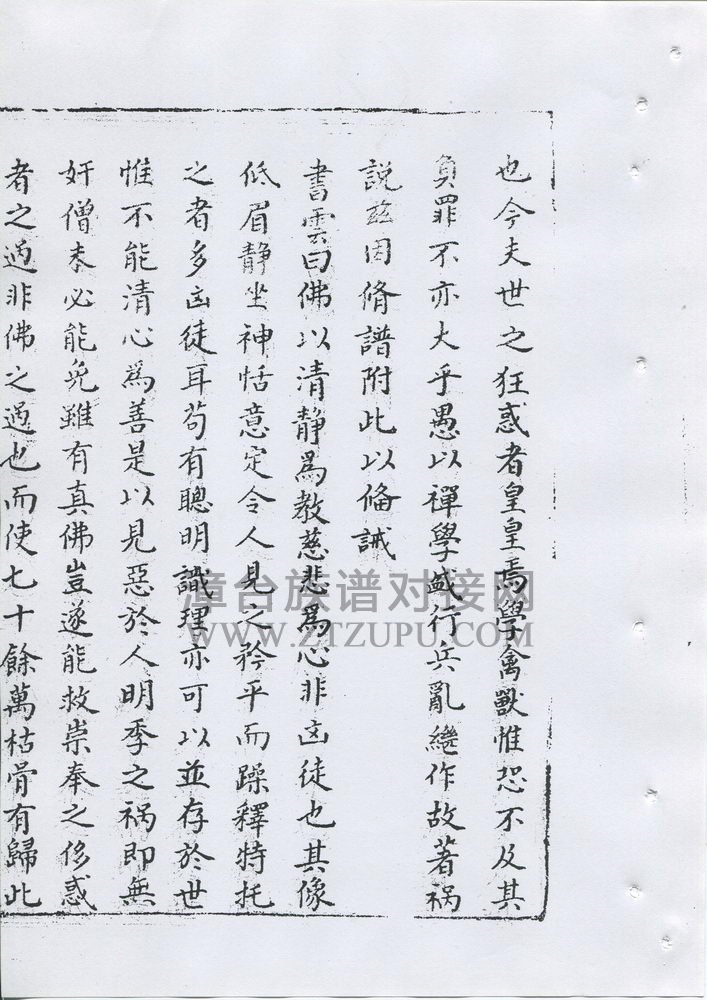 也今夫世之狂惑者皇皇焉學禽獸惟恐不及其
負罪不亦大乎愚以禪學盛行兵亂繼作故著禍
說兹因脩譜附此以俻誡
書雲曰佛以清靜為教慈悲為心非凶徒也其像
低眉靜坐神恬意定令人見之矜平而躁釋特托
之者多凶徒耳苟有聰明識理亦可以並存於世
惟不能清心為善是以見惡於人明季之禍即無
奸僧未必能免雖有真佛豈遂能救崇奉之侈惑
者之過非佛之過也而使七十餘萬枯骨有歸此
漳台族谱对接网
WWW.ZTZUPU.COM